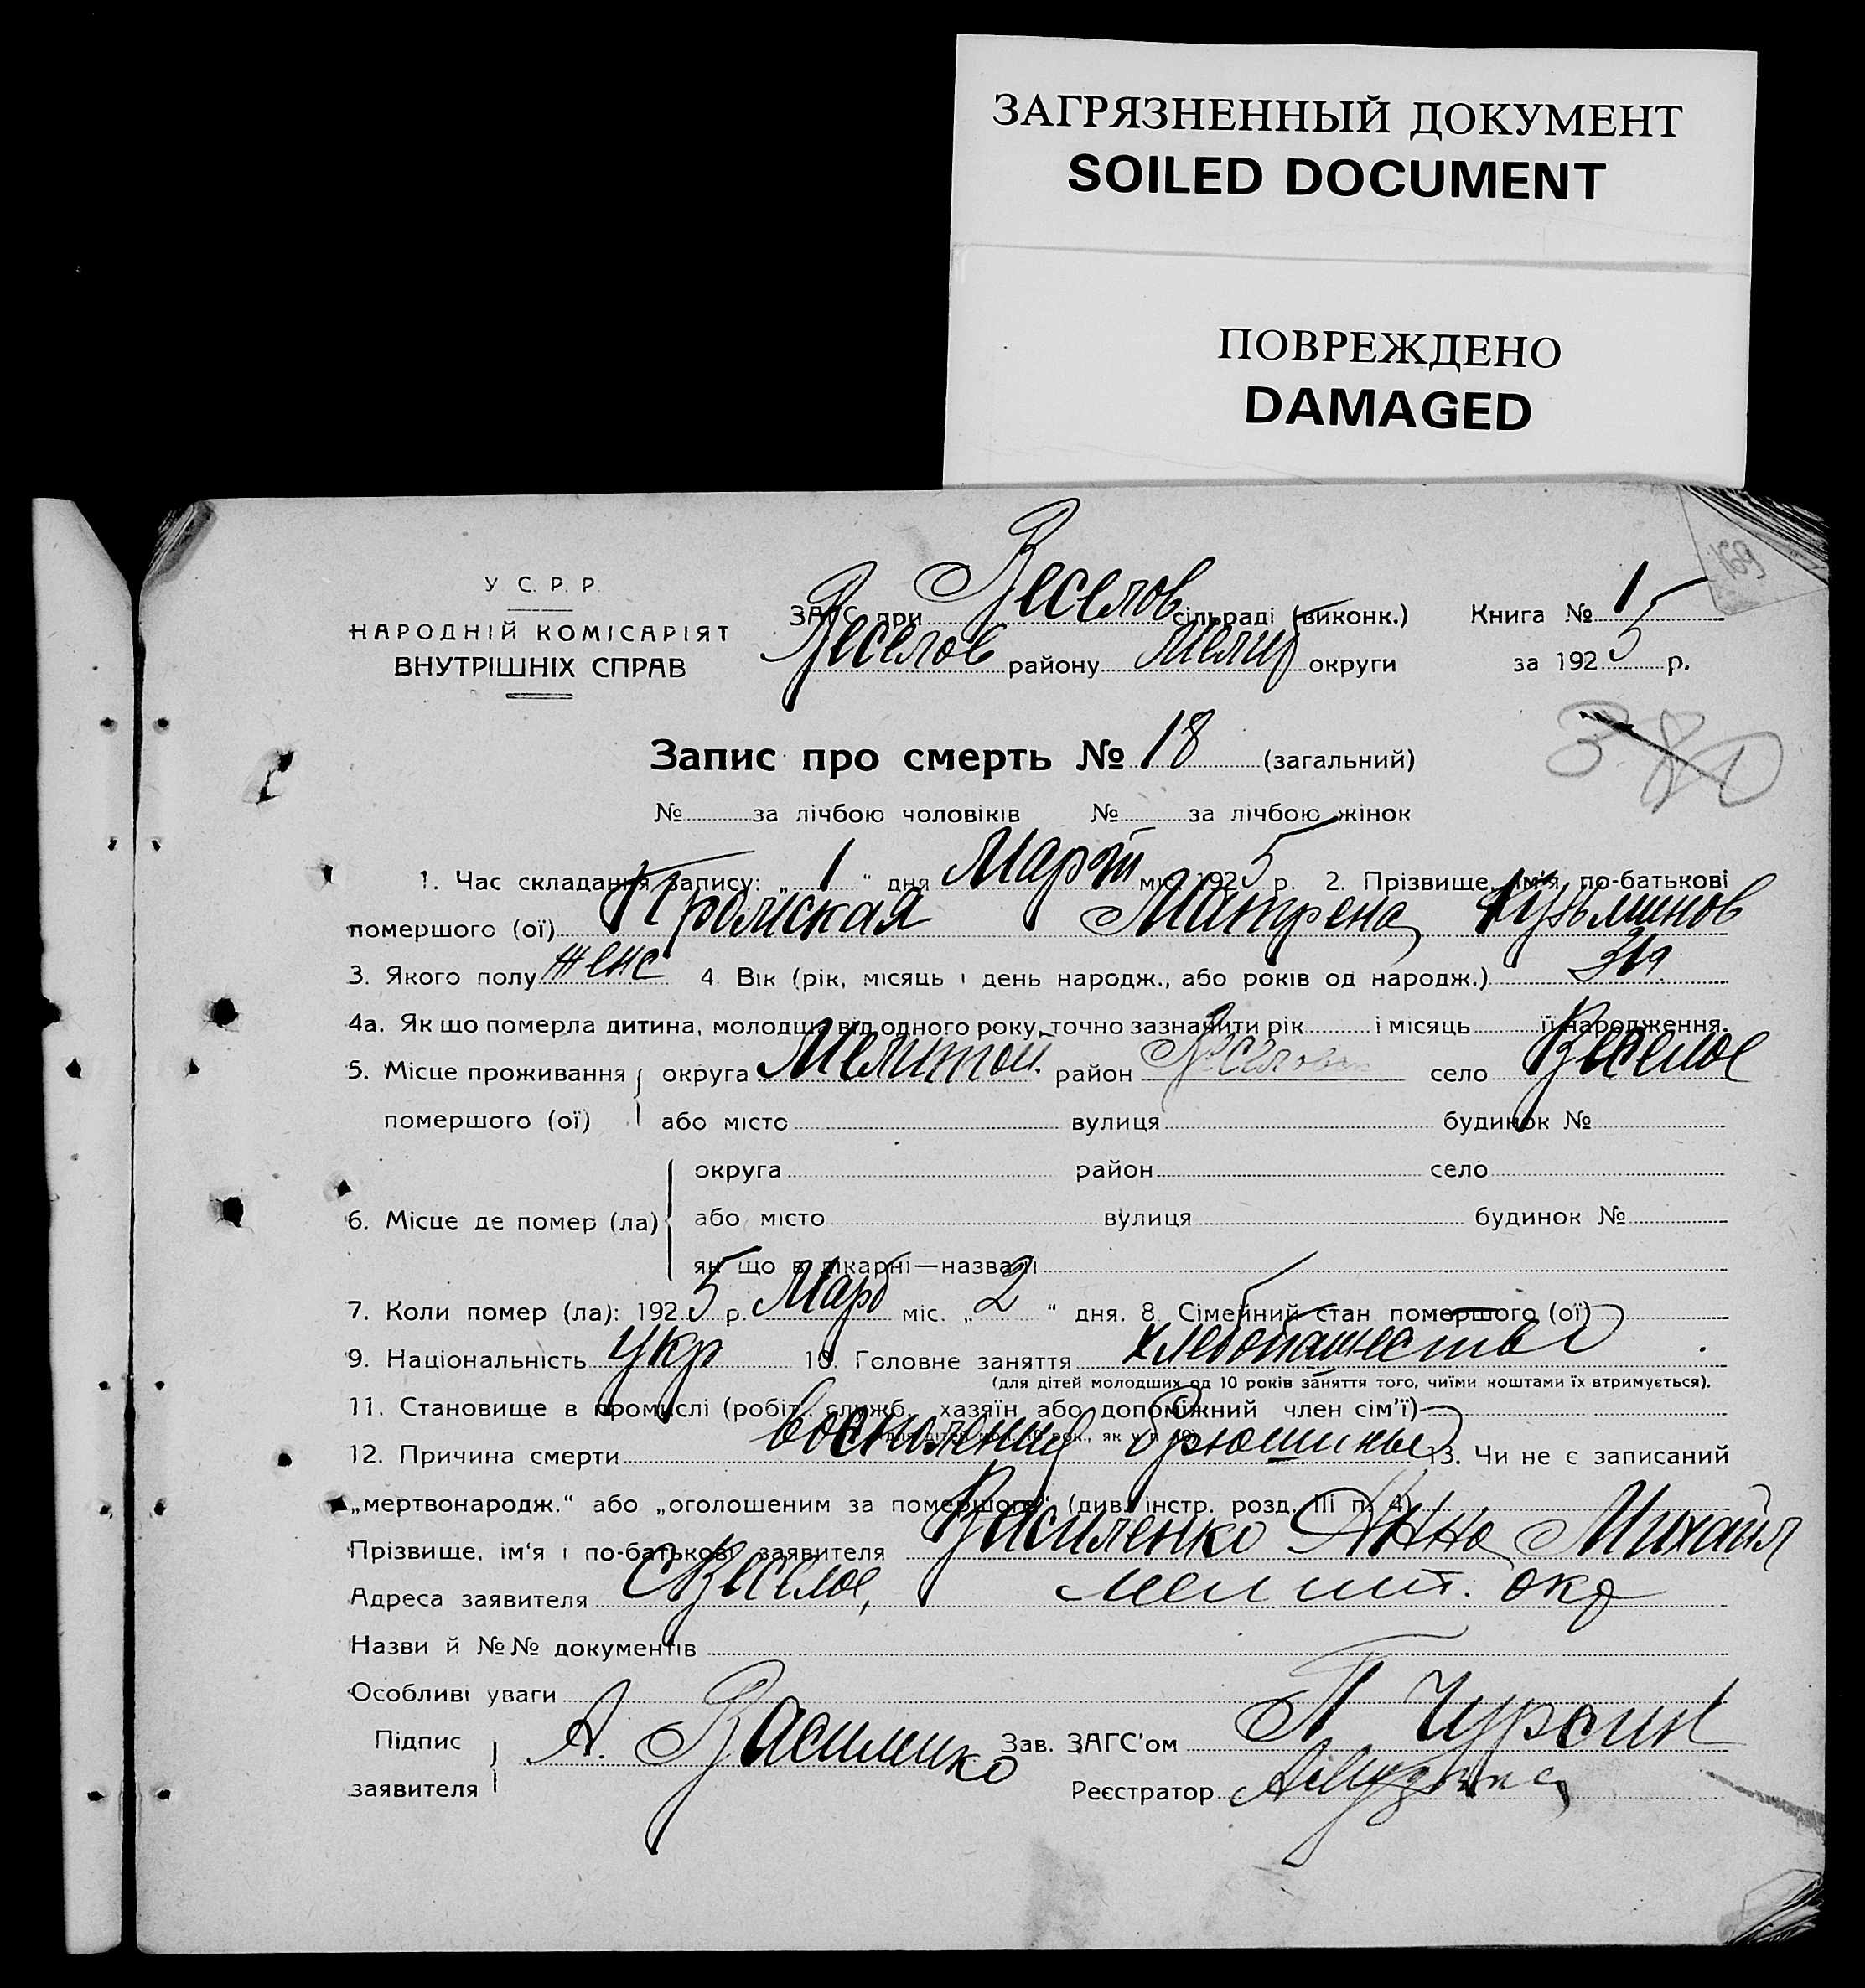 ЗАГРЯЗНЕННЫЙ ДОКУМЕНТ
SOILED DOCUMENT
ПОВРЕЖДЕНО
DAMAGED
169
У С. Р. Р.
НАРОДНІЙ КОМІСАРІЯТ
ВНУТРІШНІХ СПРАВ
ЗАГС при Веселов сільраді (виконк.)
Веселов району Мелит округи
Книга № 1
за 1925 р.
380
Запис про смерть № 18 (загальний)
№ за лічбою чоловіків № за лічбою жінок
1. Час складання запису: „ 1 “ дня Март міс. 1925 р. 2. Прізвище, ім'я, по-батькові
помершого (ої) Матрена Кузьминов
3. Якого полу женс 4. Вік (рік, місяць і день народж., або років од народж.)
4а. Як що померла дитина, молодша від одного року, точно зазначити рік і місяць її народження.
5. Місце проживання округа Мелитоп. район Веселов село Веселое
помершого (ої) або місто вулиця будинок №
округа район село
6. Місце де помер (ла) або місто вулиця будинок №
як що в лікарні—назва її
7. Коли помер (ла): 1925 р. Март міс. „ 2 “ дня. 8. Сімейний стан помершого (ої)
9. Національність Укр 10. Головне заняття хлебопашество
(для дітей молодших од 10 років заняття того, чиїми коштами їх втримується).
11. Становище в промислі (робіт., служб., хазяїн або допоміжний член сім'ї)
12. Причина смерти воспаление брюшины 13. Чи не є записаний
„мертвонародж.“ або „оголошеним за помершого“ (див. інстр. розд. III п. 4)
Прізвище, ім'я і по-батькові заявителя Василенко Анна Михайл
Адреса заявителя с Веселое, мелит. окр
Назви й №№ документів
Особливі уваги
Підпис заявителя А. Василенко Зав. ЗАГС'ом П Чурсин
Реєстратор